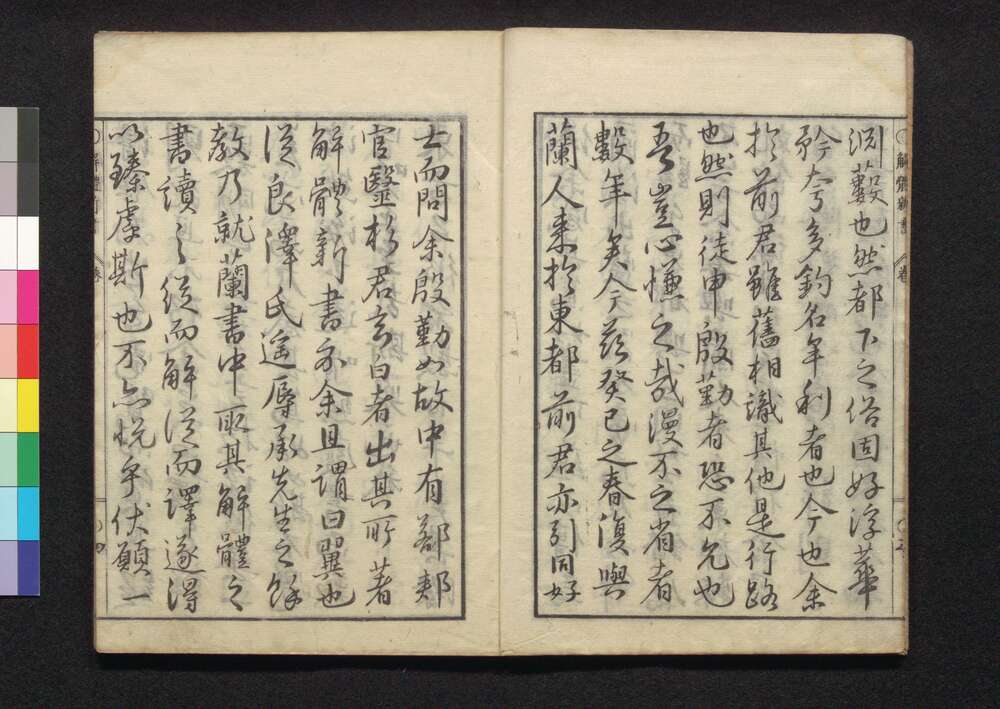 渕藪也然都下之俗固好浮華
矜夸多釣名牟利者也今也余
於前君雖舊相識其他是行路
也然則徒申殷勤者恐不免也
吾豈心慊之哉漫不之省者
數年矣今茲癸巳之春復與
蘭人来於東都前君亦引同好
士而問余殷勤如故中有
官醫杉君玄白者出其所著
解體新書示余且謂曰翼也
從良澤氏遙辱承先生之餘
教乃就蘭書中取其解體之
書讀之從而解從而譯遂得
以臻虖斯也不亦悦乎伏願一
解體新書
巻